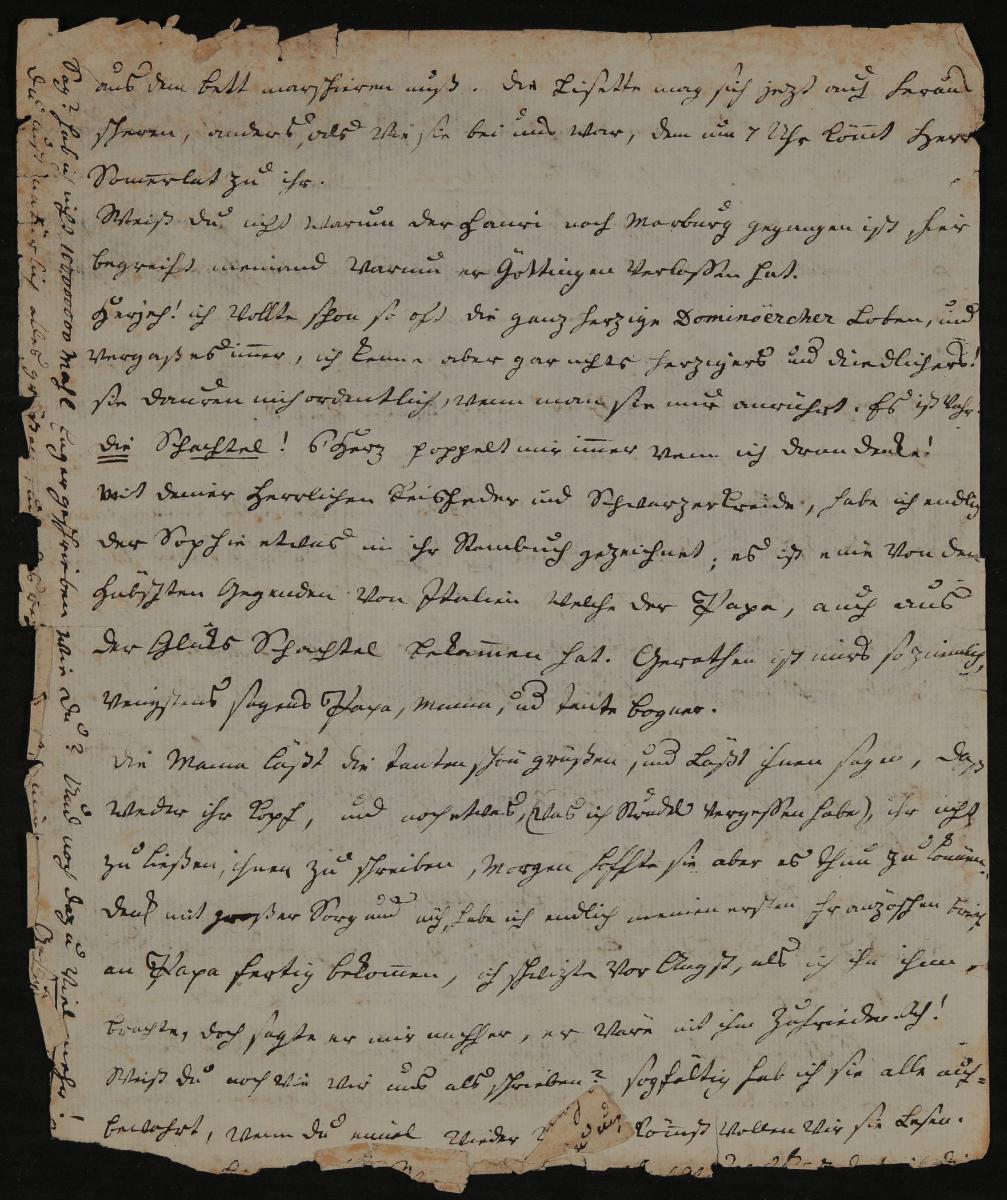 aus dem bett marschieren muß. Die Lisette mag sich jezt auch heraus
scheren, anders als wie sie bei uns war, dem um 7 Uhr kömt Herr
Somerlat zu ihr.
Weist du nicht warum der Hanri nach Marburg gegangen ist, hier
begreift niemand warum er Göttingen verlassen hat.
Herjeh! ich wollte schon so oft die ganz herzige Dominöercher Loben, und
vergaß es imer, ich kenne aber gar nichts herzigers und niedlichers!
sie dauren mich ordentlich, wenn man sie nur anrührt. Es ist wahr
die Schachtel! s'Herz poppelt mir imer wenn ich dran denke!
mit deiner Herrlichen Reisfeder und Schwarzerkreide, habe ich endlich
der Sophie etwas in ihr Stambuch gezeichnet; es ist eine von den
hübschten Gegenden von Italien welche der Papa, auch aus
der Glüks Schachtel bekammen hat. Gerathen ist mirs so ziemlich,
wenigstens sagens Papa, Mama, und tante bogner.
Die Mama läßt die tanten schön grüßen, und Läßt ihnen sagen, daß
weder ihr Kopf, und noch etwas, (was ich Strudel vergessen habe), ihr nicht
zu ließen, ihnen zu schreiben, Morgen hoffte sie aber es thun zu können.
Denk mit großer Sorg und müh, habe ich endlich meinen ersten französchen brief
an Papa fertig bekommen, ich schwizte vor Angst, als ich ihn ihm
brachte, doch sagte er mir nachher, er wäre mit ihm zufrieden. Ach!
Weist du noch wie wir uns als schrieben? sorgfältig hab ich sie alle auf-
bewahrt, wenn du einmal wieder kömst wollen wir sie Lesen.
Sag? hab ich nicht 10000000 mahl Enger geschrieben wie Du? Und noch dazu viel mehr!